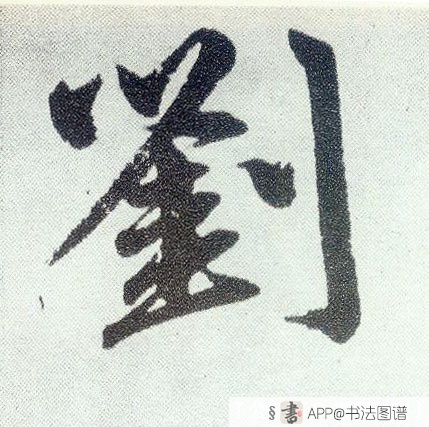 劉
§書 APP@书法图谱